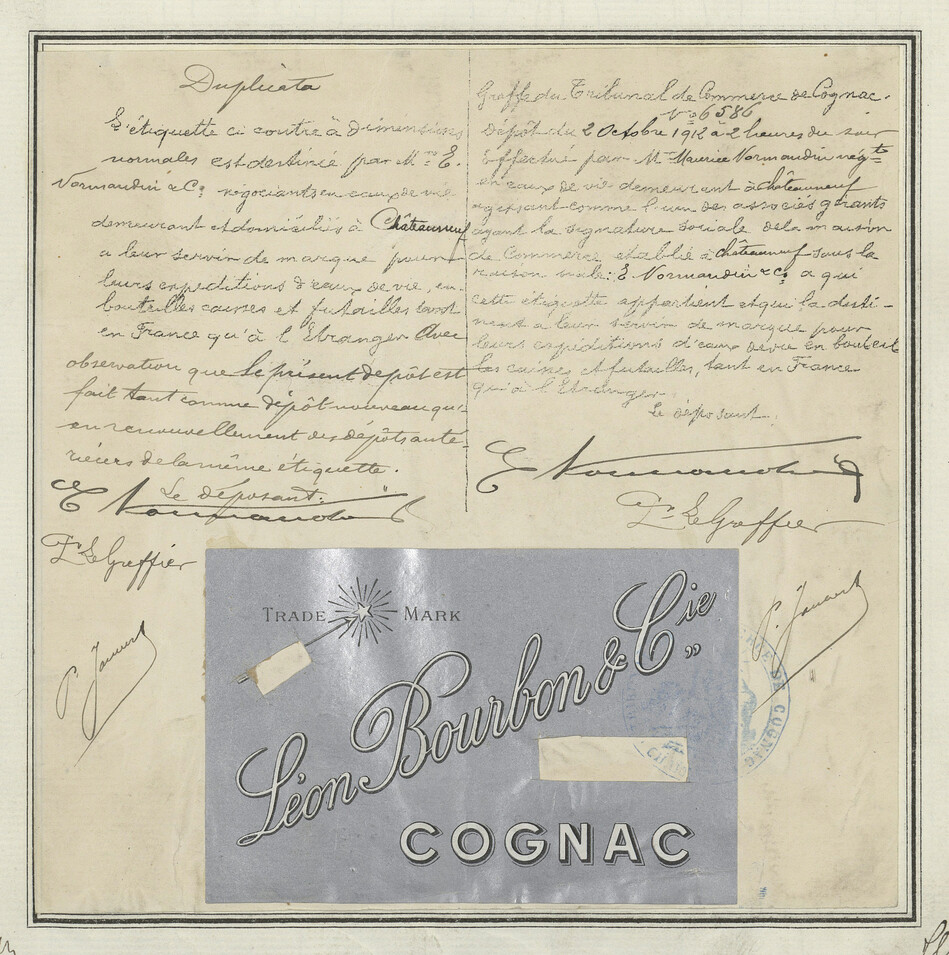 Duplicata
L'étiquette ci contre à dimensions
normales est destinée par Mrs E.
Normandin & Co négociants en eaux de vie
demeurant et domiciliés à Châteauneuf
a leur servir de marque pour
leurs expeditions d'eaux de vie, en
bouteilles caisses et futailles tant
en France qu'à l'Etranger Avec
observation que le présent depôt est
fait tant comme dépôt nouveau qu'
en renouvellement des dépôts anté-
rieurs de la même étiquette.
Le déposant:
E Normandin
Pr Le Greffier
P. Jouvert
Greffe du Tribunal de Commerce de Cognac.
No 6586
Dépôt du 2 Octobre 1912 à 2 heures du soir
Effectué par Mr Maurice Normandin négt
en eaux de vie demeurant à Châteauneuf
agissant comme l'un des associés gérants
ayant la signature sociale de la maison
de Commerce établie à Châteauneuf sous la
raison sociale: E. Normandin & Co a qui
cette étiquette appartient et qui la desti-
nent a leur servir de marque pour
leurs expéditions d'eaux de vie en bouteil-
les caisses et futailles, tant en France
qu'à l'Etranger
Le déposant.
E Normandin
Pr Le Greffier
P. Jouvert
TRADE MARK
Léon Bourbon & Cie „
COGNAC
DE COGNAC